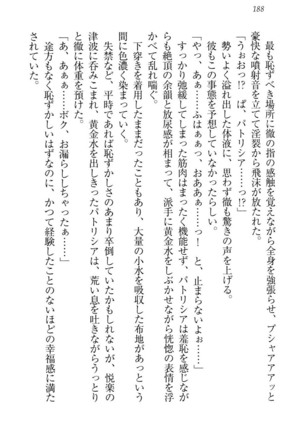 188
最も恥ずべき場所に徹の指の感触を覚えながら全身を強張らせ、プシャアアアッと
豪快な噴射音を立てて淫裂から飛沫が放たれた。
「うぉおっ!?　ぱ、パトリシア……っ!?」
勢いよく溢れ出した体液に、思わず徹も驚きの声を上げる。
彼もこの事態を予想していなかったのだろう。
「やっ、あぁ……ふはぁぁっ、おあああ……っ！　と、止まらないよぉ……！」
すっかり弛緩してしまった筋肉はまったく機能せず、パトリシアは羞恥を感じなが
らも絶頂の余韻と放尿感が相まって、派手に黄金水をしぶかせながら恍惚の表情を浮
かべて乱れ喘ぐ。
下穿きを着用したままだったこともあり、大量の小水を吸収した布地があっという
間に色濃く染まっていく。
失禁など、平時であれば恥ずかしさのあまり卒倒していたかもしれないが、悦楽の
津波に呑みこまれ、黄金水を出しきったパトリシアは、荒い息を吐きながらうっとり
と徹に体重を預けた。
「あ、あぁぁ……ボク、お漏らししちゃったぁ……」
途方もなく恥ずかしいはずなのに、かつて経験したことのないほどの幸福感に満た
されていた。